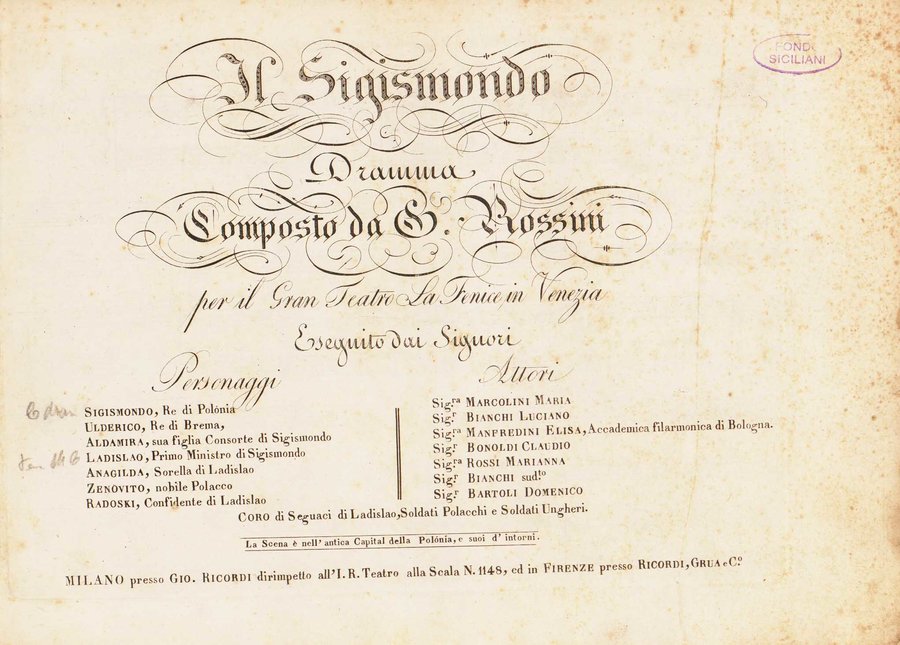 Il Sigismondo
FOND.
SICILIANI
Dramma
Composto da G. Rossini
per il Gran Teatro La Fenice, in Venezia
Eseguito dai Signori
Personaggi
SIGISMONDO, Re di Polónia
ULDERICO, Re di Brema,
ALDAMIRA, sua figlia Consorte di Sigismondo
LADISLAO, Primo Ministro di Sigismondo
ANAGILDA, Sorella di Ladislao
ZENOVITO, nobile Polacco
RADOSKI, Confidente di Ladislao
Attori
Sig.ra MARCOLINI MARIA
Sig.r BIANCHI LUCIANO
Sig.ra MANFREDINI ELISA, Accademica filarmonica di Bologna.
Sig.r BONOLDI CLAUDIO
Sig.ra ROSSI MARIANNA
Sig.r BIANCHI sud.to
Sig.r BARTOLI DOMENICO
CORO di Seguaci di Ladislao, Soldati Polacchi e Soldati Ungheri.
La Scena è nell' antica Capital della Polónia, e suoi d' intorni.
MILANO presso GIO. RICORDI dirimpetto all' I. R. Teatro alla Scala N. 1148, ed in FIRENZE presso RICORDI, GRUA e C.o